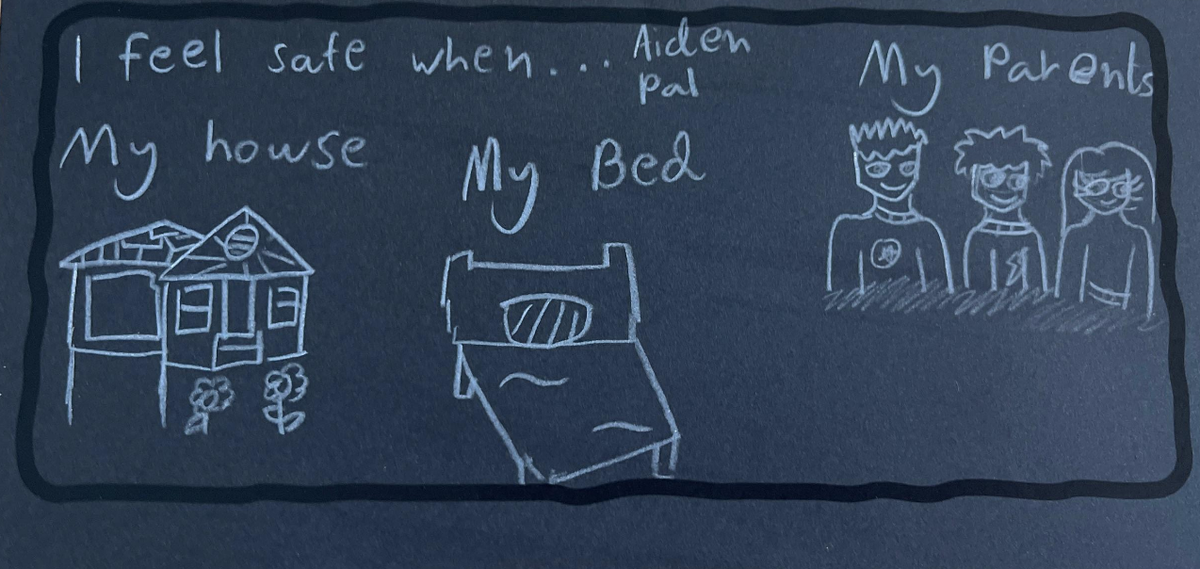 I feel safe when... Aiden
Pal
My howse
My Bed
My Parents